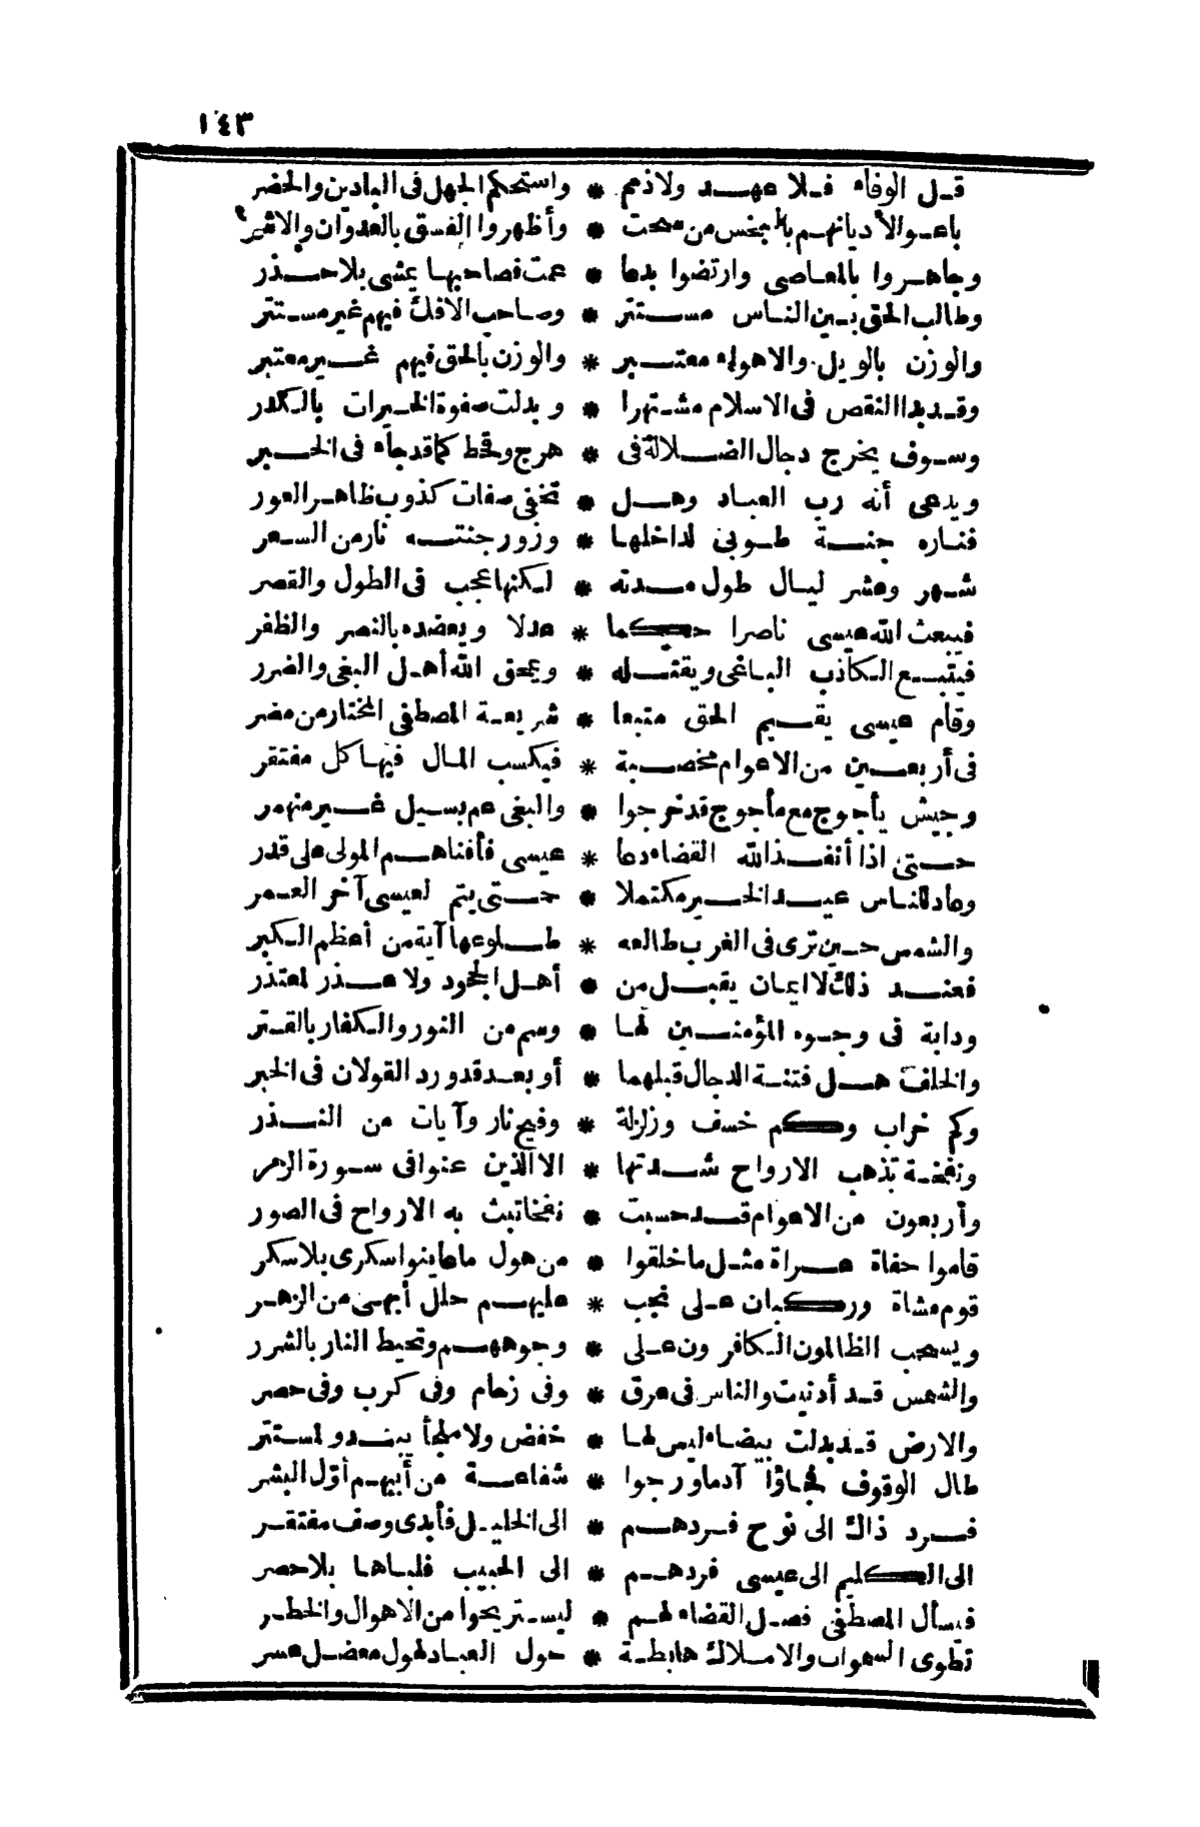 ١٤٣
قل الوفاء فلا عهد ولا ذمم * واستحكم الجهل فى البادين والحضر
باعوا الأديانهم بالبخس من سحت * وأظهروا الفسق بالعدوان والاشر
وجاهروا بالمعاصى وارتضوا بدعا * عمت فصاحبها يمشى بلا حذر
وطالب الحق بين الناس مستتر * وصاحب الافك فيهم غير مستتر
والوزن بالويل والاهواء معتبر * والوزن بالحق فيهم غير معتبر
وقد بدا النقص فى الاسلام مشتهرا * وبدلت صفوة الخيرات بالكدر
وسوف يخرج دجال الضلالة فى * هرج وقحط كما قد جاء فى الخبر
ويدعى أنه رب العباد وهل * تخفى صفات كذوب ظاهر العور
فناره جنة طوبى لداخلها * وزور جنته نار من السعر
شهر وعشر ليال طول مدته * لكنها عجب فى الطول والقصر
فيبعث الله عيسى ناصرا حكما * عدلا ويعضده بالنصر والظفر
فيتبع الكاذب الباغى ويقتله * ويمحق الله أهل البغى والضرر
وقام عيسى يقيم الحق متبعا * شريعة المصطفى المختار من مضر
فى أربعين من الاعوام مخصبة * فيكسب المال فيها كل مفتقر
وجيش يأجوج مع مأجوج قد خرجوا * والبغى عم بسيل غير منهمر
حتى اذا أنفذ الله القضاء دعا * عيسى فأفناهم المولى على قدر
وعاد للناس عيد الخير مكتملا * حتى يتم لعيسى آخر العمر
والشمس حين ترى فى الغرب طالعه * طلوعها آية من أعظم الكبر
فعند ذلك لا ايمان يقبل من * أهل الجحود ولا عذر لمعتذر
ودابة فى وجوه المؤمنين لها * وسم من النور والكفار بالقتر
والخلف هل فتنة الدجال قبلهما * أو بعد قد ورد القولان فى الخبر
وكم خراب وكم خسف وزلزلة * وفيح نار وآيات من النذر
ونفخة تذهب الارواح شدتها * الا الذين عنوا فى سورة الزمر
وأربعون من الاعوام قد حسبت * نفخا تبث به الارواح فى الصور
قاموا حفاة عراة مثل ما خلقوا * من هول ما عاينوا سكرى بلا سكر
قوم مشاة وركبان على نجب * عليهم حلل أبهى من الزهر
ويسحب الظالمون الكافرون على * وجوههم وتحيط النار بالشرر
والشمس قد أدنيت والناس فى عرق * وفى زحام وفى كرب وفى حصر
والارض قد بدلت بيضاء ليس لها * خفض ولا ملجأ يبدو لمستتر
طال الوقوف فجاؤا آدما ورجوا * شفاعة من أبيهم أول البشر
فرد ذاك الى نوح فردهم * الى الخليل فأبدى وصف مفتقر
الى الكليم الى عيسى فردهم * الى الحبيب فلباها بلا حصر
فيسأل المصطفى فصل القضاء لهم * ليستريحوا من الاهوال والخطر
تطوى السموات والاملاك هابطة * حول العباد لهول معضل عسر